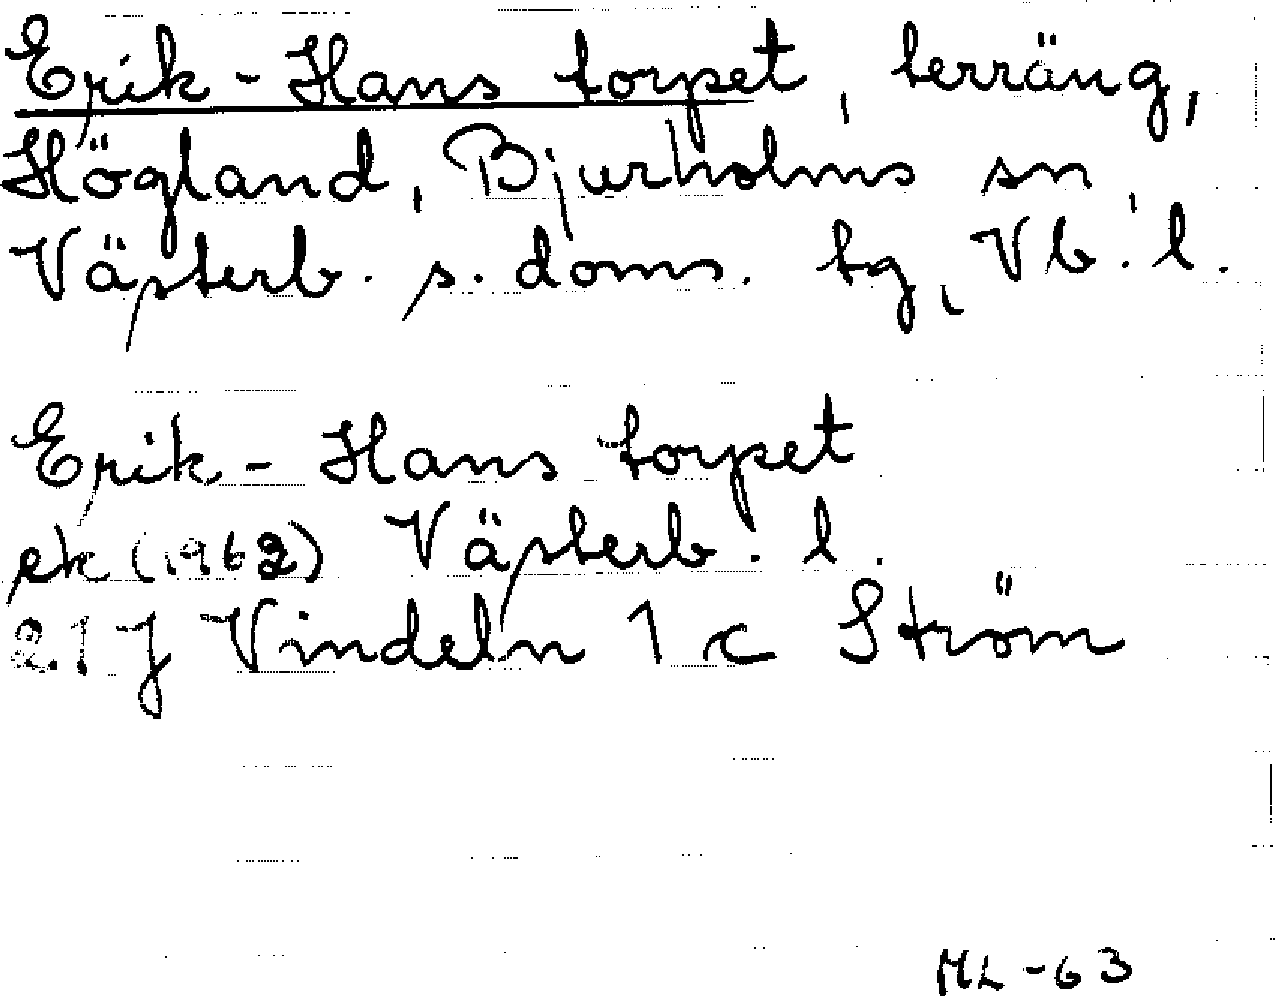 Erik-Hans torpet, terräng,
Högland, Bjurholms sn,
Västerb. s. doms. tg, Vb. l.
Erik-Hans torpet
ek (1962) Västerb. l.
21 J Vindeln 1 c Ström
ML-63